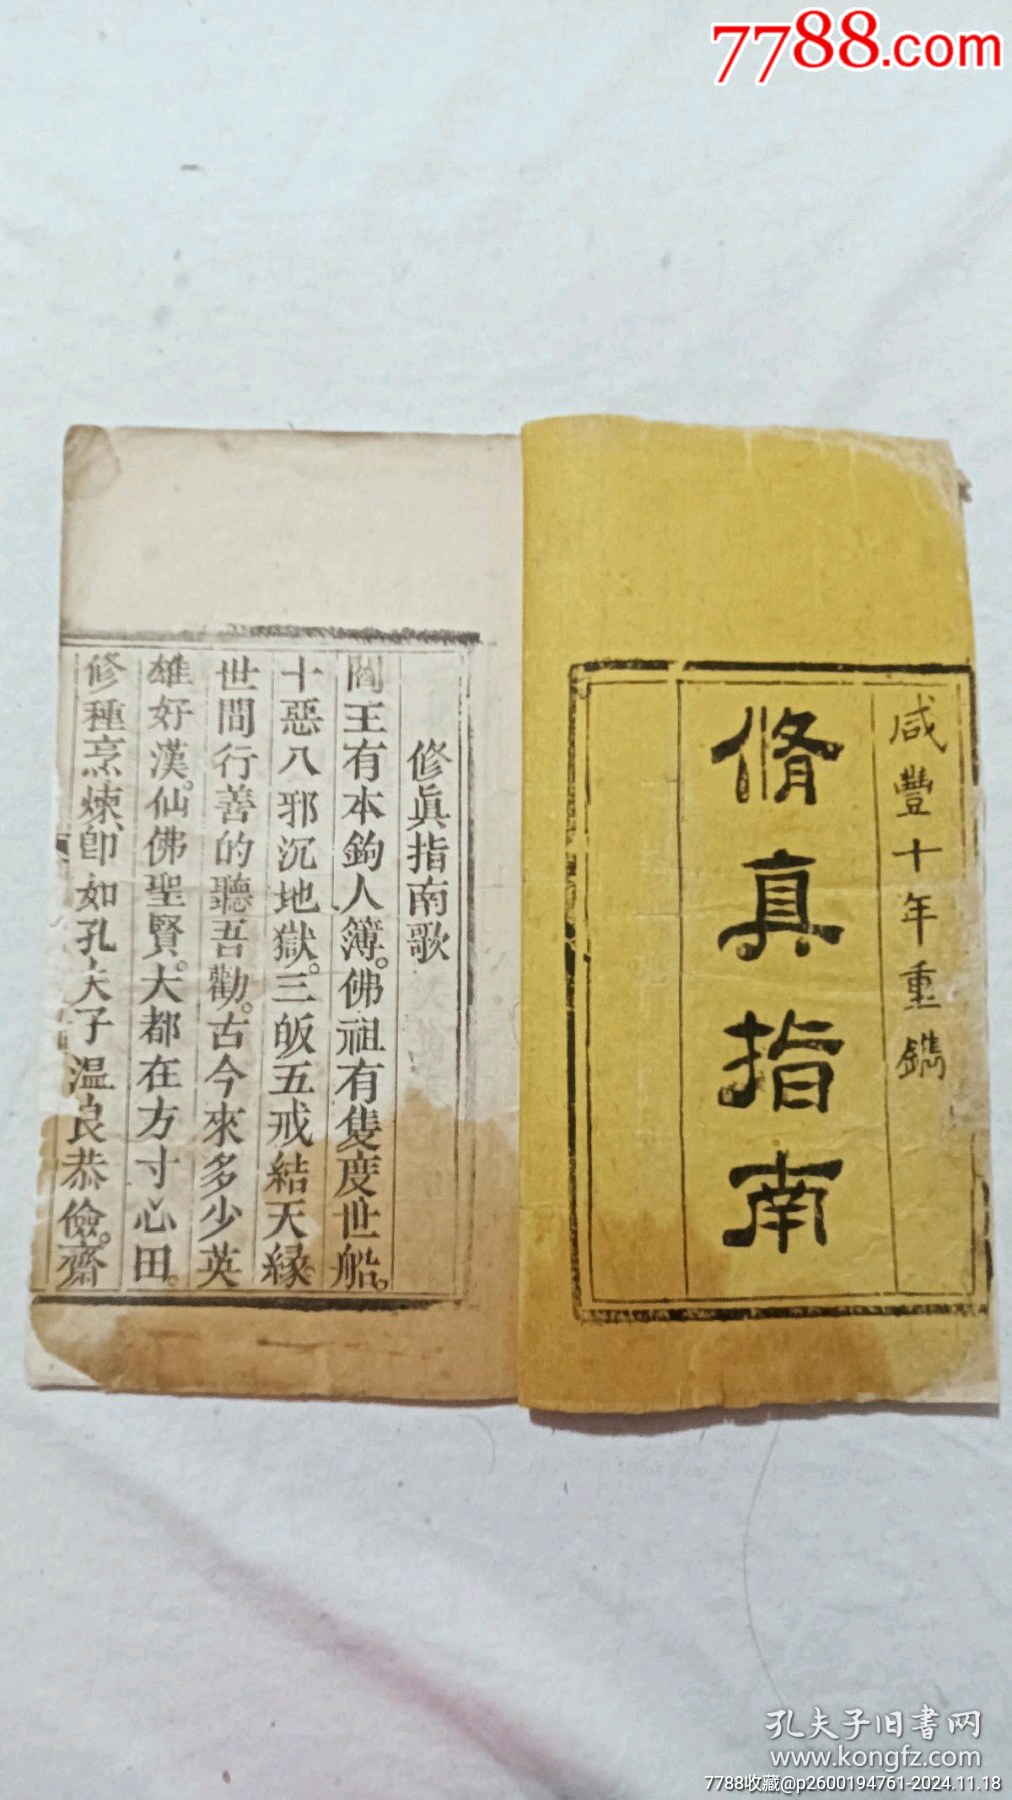 7788.com
咸豐十年重鐫
脩真指南
修眞指南歌
閻王有本鉤人簿。佛祖有隻度世船。
十惡八邪沉地獄。三皈五戒結天緣。
世間行善的聽吾勸。古今來多少英
雄好漢。仙佛聖賢。大都在方寸心田。
修種烹煉、卽如孔夫子温良恭儉。齋
孔夫子旧書网
www.kongfz.com
7788收藏@p2600194761-2024.11.18